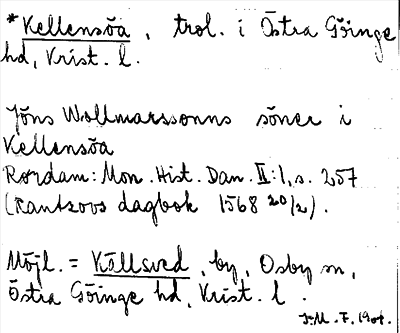 *Kellensöa, trol. i Östra Göinge
hd, Krist. l.
Jöns Wollmarssonns söner i
Kellensöa
Rørdam: Mon. Hist. Dan. II:1, s. 257
(Rantzovs dagbok 1568 20/2).
Möjl. = Källsved, by, Osby sn,
Östra Göinge hd, Krist. l.